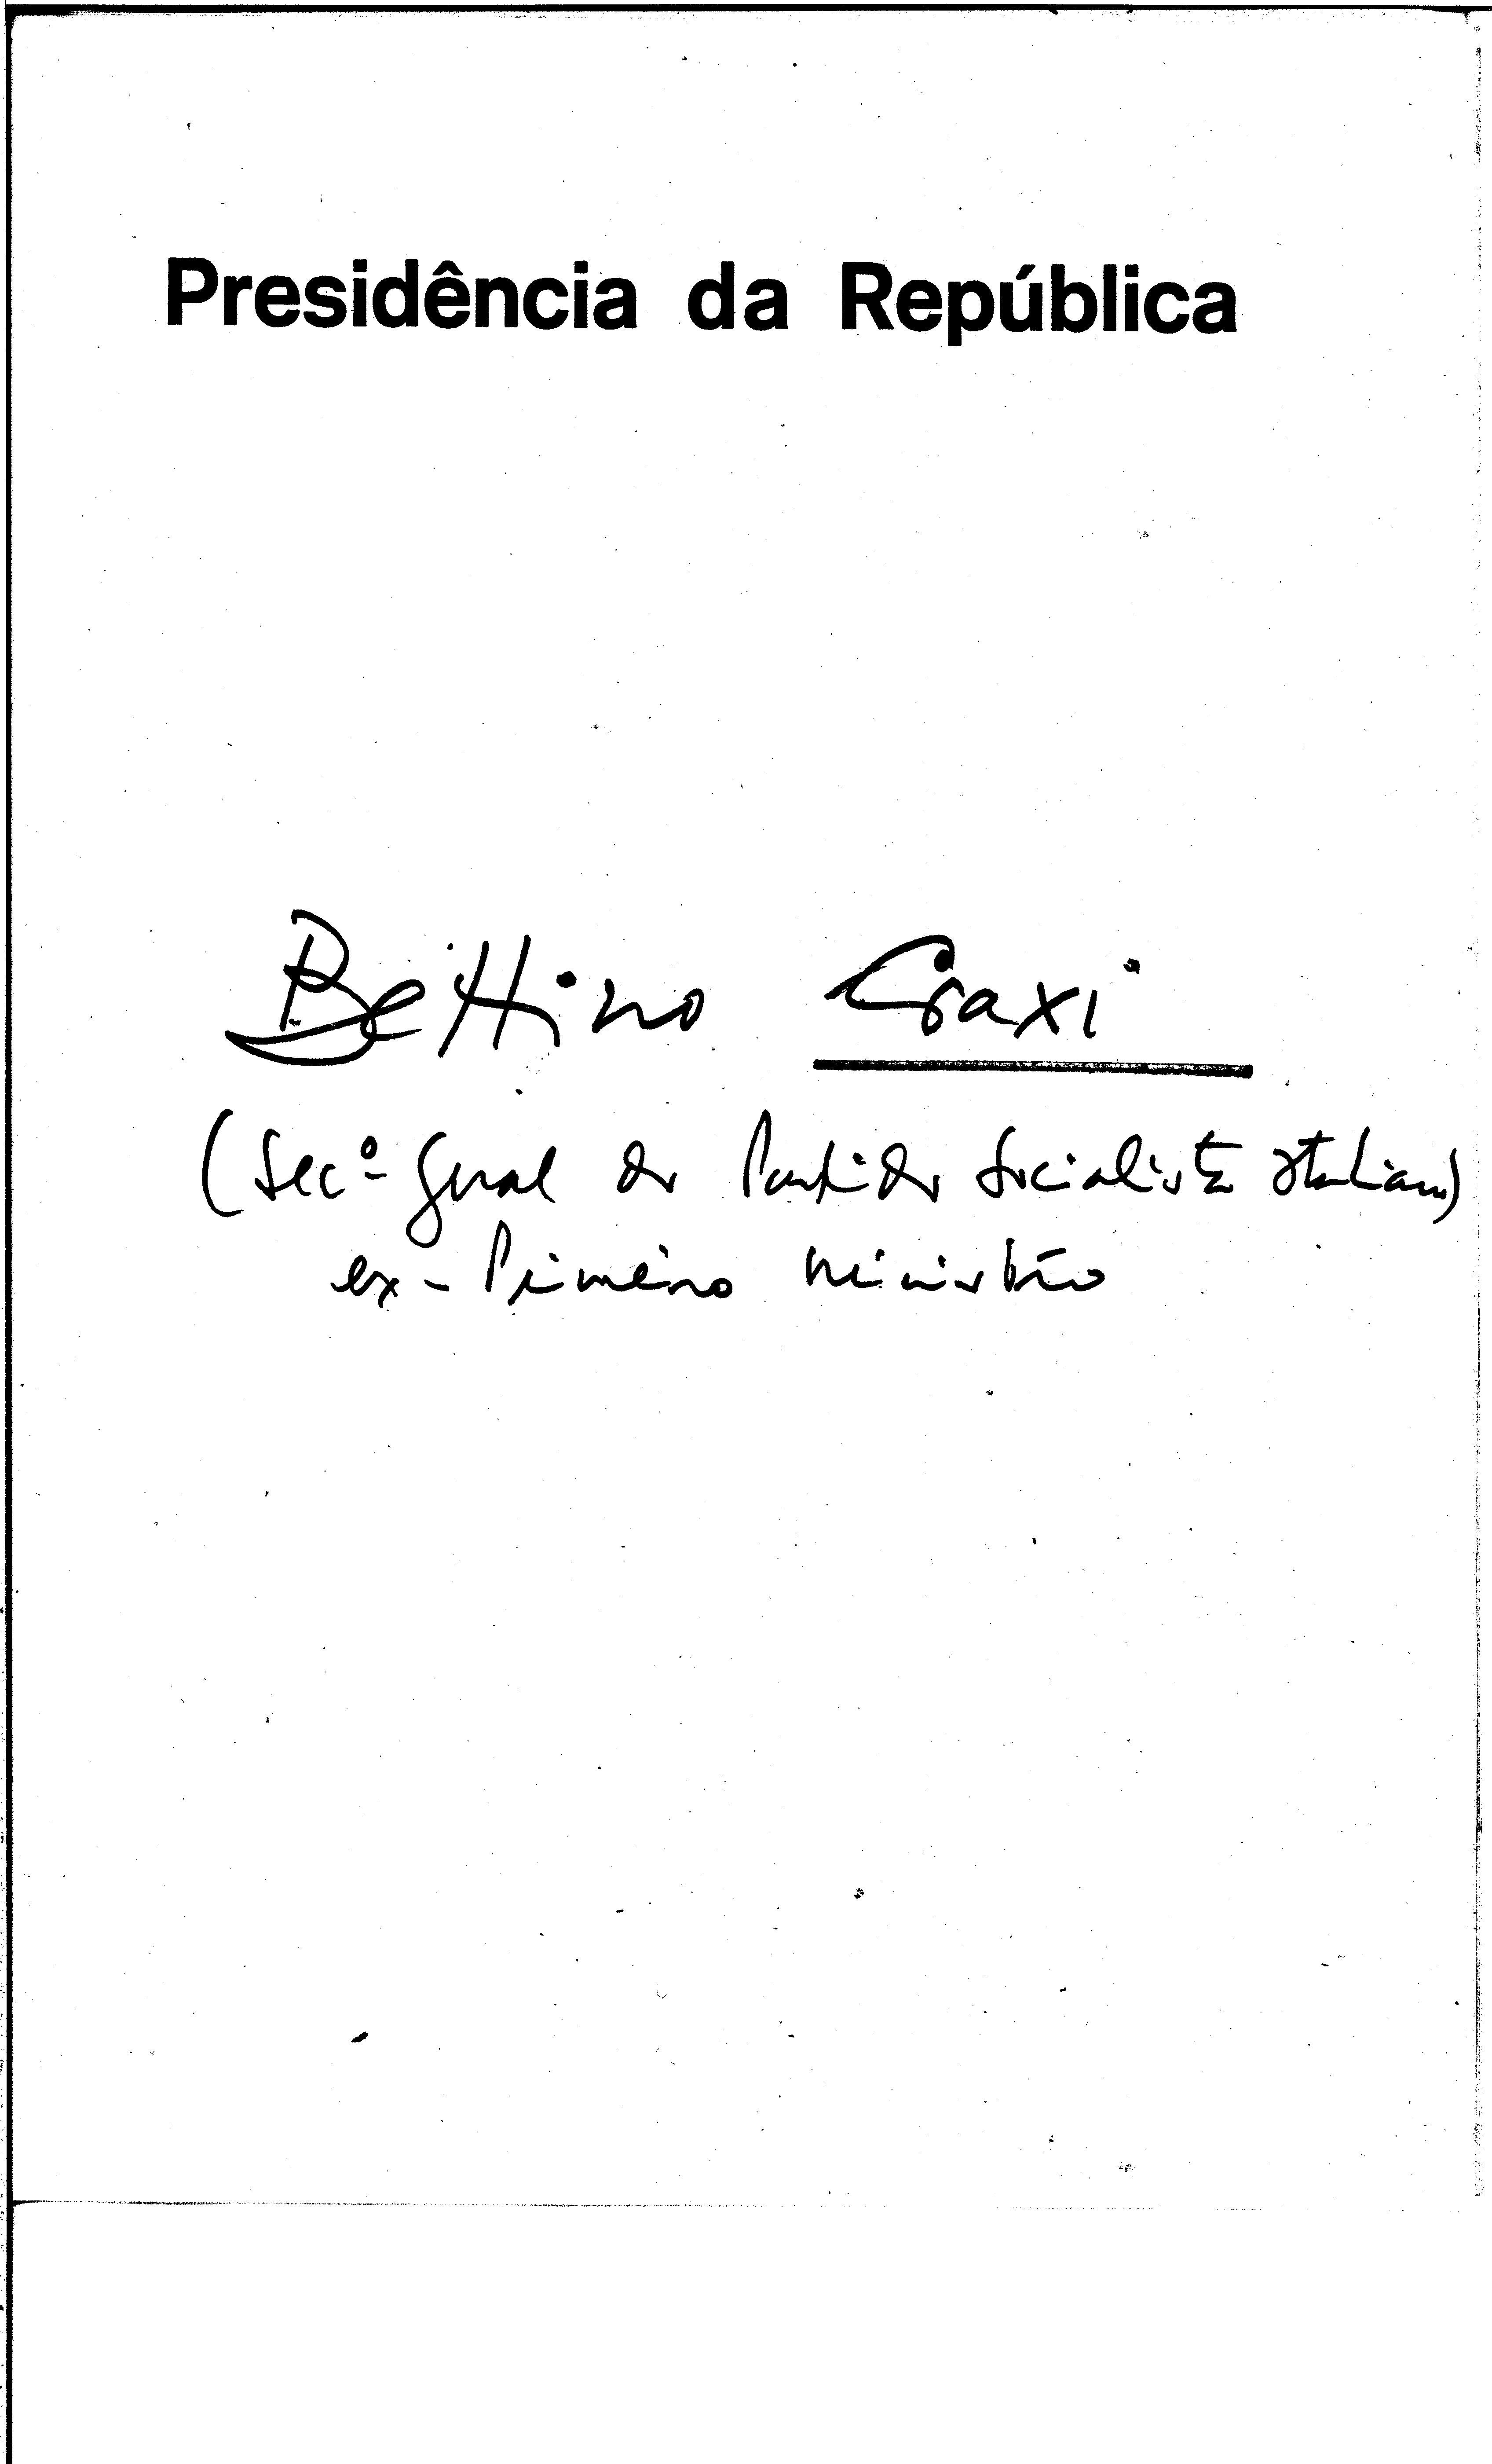 Presidência da República
Bettino Craxi
(Secº Geral do Partido Socialista Italiano)
ex-Primeiro Ministro